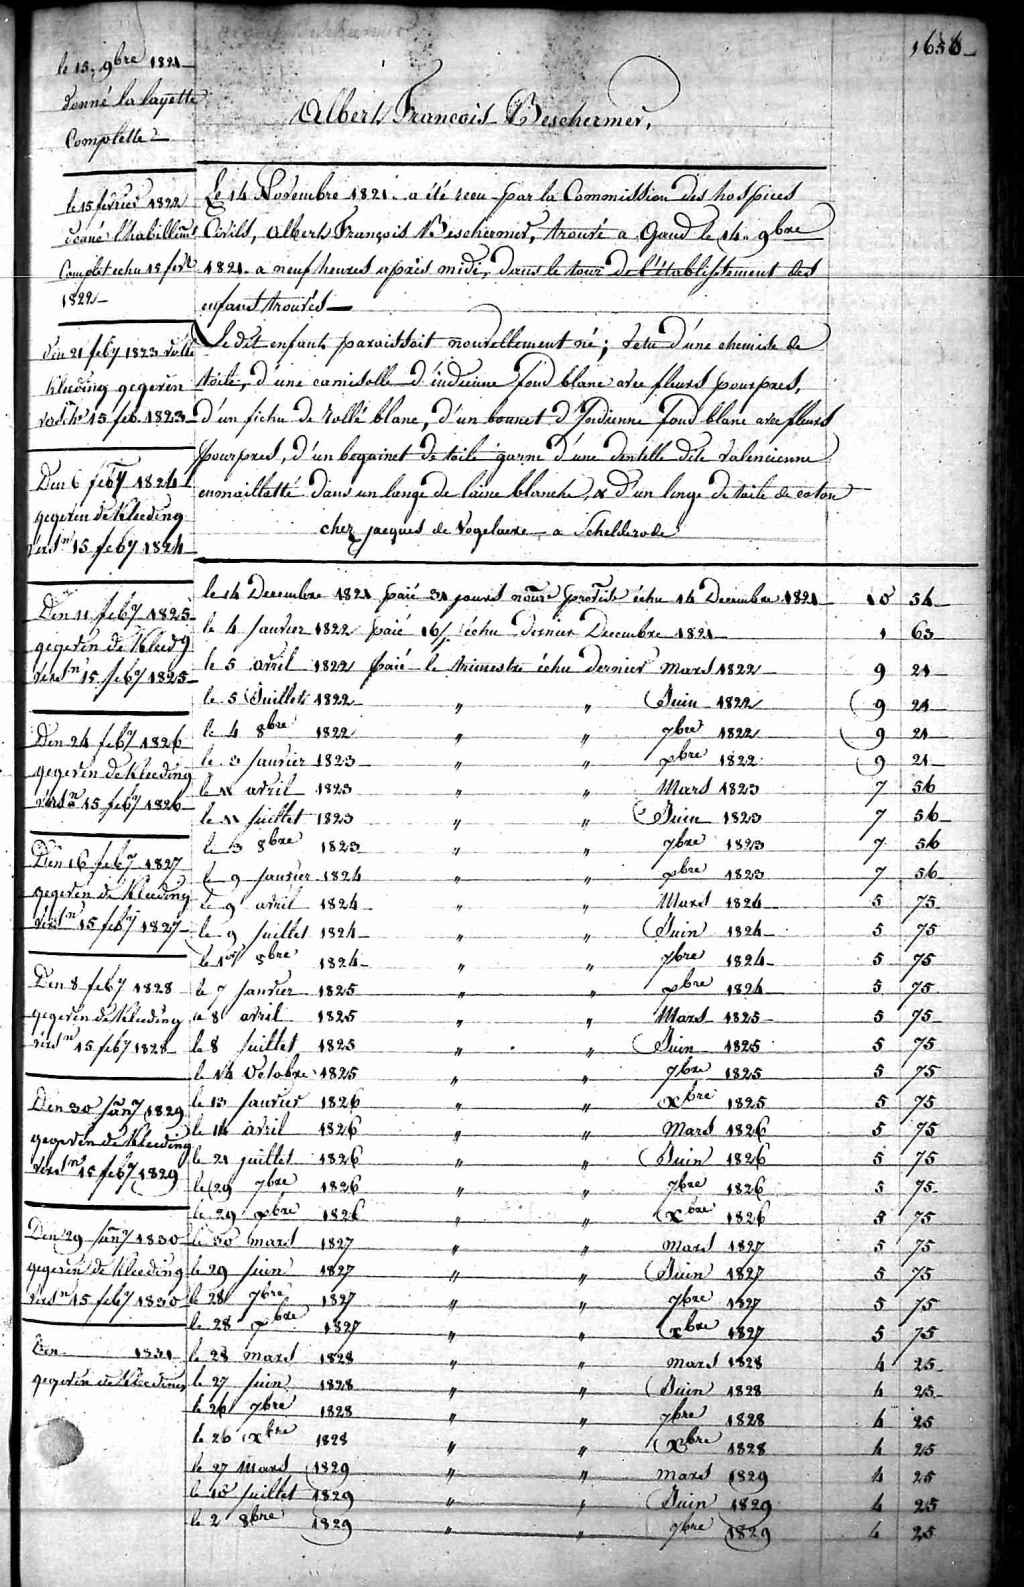 1658
Albert François Beschermer,
le 15, 9bre 1821
donné la layette
Complette
le 15 février 1822
donné l'habillemt
Complet echu 15 fevr
1822
den 21 feb7 1823
kleeding gegeven
15 feb. 1823
Den 6 feb7 1824
gegeven de kleeding
versn 15 feb7 1824
Den 11 feb7 1825
gegeven de kleedg
versn 15 feb7 1825
Den 24 feb7 1826
gegeven de kleeding
versn 15 feb7 1826
Den 16 feb7 1827
gegeven de kleeding
versn 15 feb7 1827
Den 8 feb7 1828
gegeven de kleeding
versn 15 feb7 1828
Den 30 Jan7 1829
gegeven de kleeding
versn 15 feb7 1829
Den 29 Jan7 1830
gegeven de kleeding
versn 15 feb7 1830
Den 1831
gegeven de kleeding
Le 14 Novembre 1821 a été recu par la Commission des hospices
Civils, Albert François Beschermer, trouvé a Gand le 14. 9bre
1821. a neuf heures après midi, dans le tour de l'établissement des
enfants trouvés
Le dit enfant paraissait nouvellement né; vetu d'une chemise de
toile, d'une camisolle d'indienne fond blanc avec fleurs pourpres,
d'un fichu de blanc, d'un bonnet d'Indienne fond blanc avec fleurs
pourpres, d'un beguinet de toile garni d'une dentelle dite valencienne
enmaillotté dans un lange de laine blanche, & d'un linge de toile de coton
chez Jacques de Vogelaere a Schelderode
le 14 Decembre 1821 paié 31 jours échu 14 Decembre 1821 10 54
le 4 Janvier 1822 paié 16/ échu dernier Decembre 1821 1 63
le 5 avril 1822 paié le trimestre échu dernier Mars 1822 9 21
le 5 Juillet 1822 " " Juin 1822 9 21
le 4 8bre 1822 " " 7bre 1822 9 21
le 3 Janvier 1823 " " xbre 1822 9 21
le avril 1823 " " Mars 1823 7 56
le Juillet 1823 " " Juin 1823 7 56
le 3 8bre 1823 " " 7bre 1823 7 56
le 9 Janvier 1824 " " xbre 1823 7 56
le 9 avril 1824 " " Mars 1824 5 75
le 9 Juillet 1824 " " Juin 1824 5 75
le 1er 8bre 1824 " " 7bre 1824 5 75
le 7 Janvier 1825 " " xbre 1824 5 75
le 8 avril 1825 " " Mars 1825 5 75
le 8 Juillet 1825 " " Juin 1825 5 75
le 14 Octobre 1825 " " 7bre 1825 5 75
le 13 Janvier 1826 " " xbre 1825 5 75
le 14 avril 1826 " " Mars 1826 5 75
le 21 juillet 1826 " " Juin 1826 5 75
le 29 7bre 1826 " " 7bre 1826 5 75
le 29 xbre 1826 " " Xbre 1826 5 75
le 30 mars 1827 " " Mars 1827 5 75
le 29 Juin 1827 " " Juin 1827 5 75
le 28 7bre 1827 " " 7bre 1827 5 75
le 28 xbre 1827 " " xbre 1827 5 75
le 28 mars 1828 " " mars 1828 4 25
le 27 Juin 1828 " " Juin 1828 4 25
le 26 7bre 1828 " " 7bre 1828 4 25
le 26 xbre 1828 " " Xbre 1828 4 25
le 27 Mars 1829 " " mars 1829 4 25
le 10 Juillet 1829 " " Juin 1829 4 25
le 2 8bre 1829 " " 7bre 1829 4 25